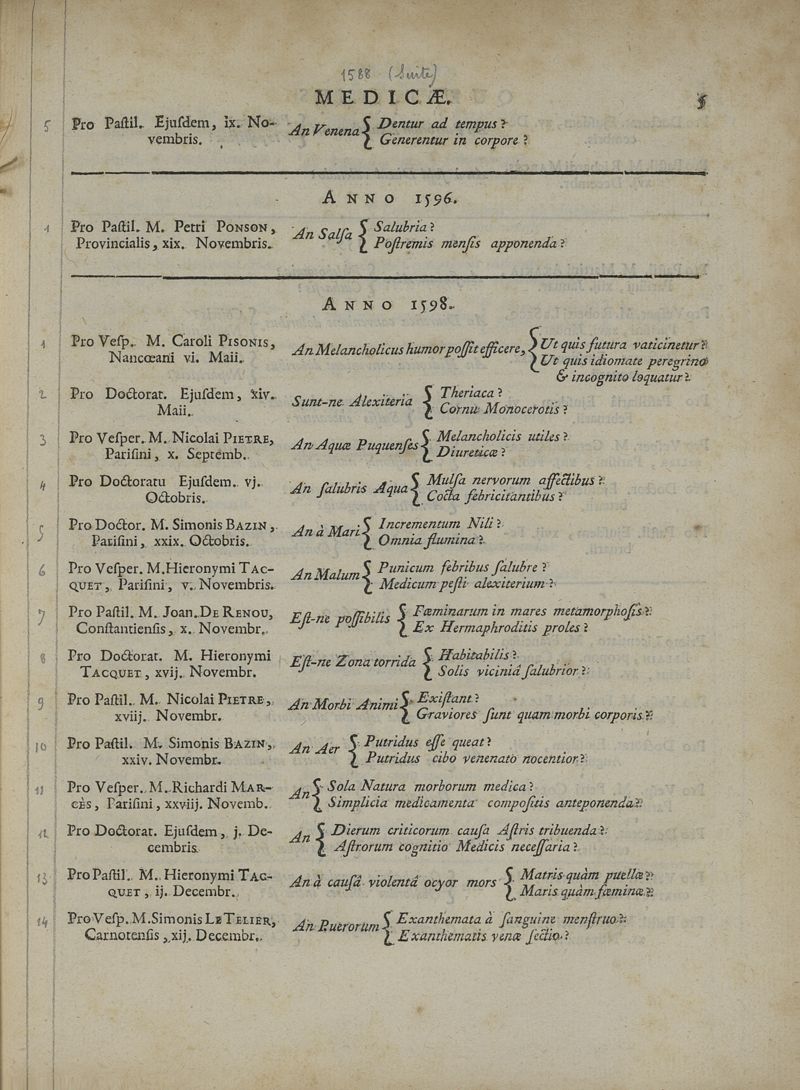 1588 (Suite)
MEDICÆ. 5
5 Pro Paſtil. Ejuſdem, ix. No- An Venena { Dentur ad tempus?
vembris. { Generentur in corpore?
ANNO 1596.
1 Pro Paſtil. M. Petri PONSON, An Salſa { Salubria?
Provincialis, xix. Novembris. { Poſtremis menſis apponenda?
ANNO 1598.
1 Pro Veſp. M. Caroli PISONIS, An Melancholicus humor poſſit efficere, { Ut quis futura vaticinetur?
Nancœani vi. Maii. { Ut quis idiomate peregrino
& incognito loquatur?
2 Pro Doctorat. Ejuſdem, xiv. Sunt-ne Alexiteria { Theriaca?
Maii. { Cornu Monocerotis?
3 Pro Veſper. M. Nicolai PIETRE, An Aquæ Puquenſes { Melancholicis utiles?
Pariſini, x. Septemb. { Diureticæ?
4 Pro Doctoratu Ejuſdem. vj. An ſalubris Aqua { Mulſa nervorum affectibus?
Octobris. { Cocta febricitantibus?
5 Pro Doctor. M. Simonis BAZIN, An à Mari { Incrementum Nili?
Pariſini, xxix. Octobris. { Omnia flumina?
6 Pro Veſper. M. Hieronymi TAC- An Malum { Punicum febribus ſalubre?
QUET, Pariſini, v. Novembris. { Medicum peſti alexiterium?
7 Pro Paſtil. M. Joan. DE RENOU, Eſt-ne poſſibilis { Fœminarum in mares metamorphoſis?
Conſtantienſis, x. Novembr. { Ex Hermaphroditis proles?
8 Pro Doctorat. M. Hieronymi Eſt-ne Zona torrida { Habitabilis?
TACQUET, xvij. Novembr. { Solis viciniâ ſalubrior?
9 Pro Paſtil. M. Nicolai PIETRE, An Morbi Animi { Exiſtant?
xviij. Novembr. { Graviores ſunt quam morbi corporis?
10 Pro Paſtil. M. Simonis BAZIN, An Aer { Putridus eſſe queat?
xxiv. Novembr. { Putridus cibo venenato nocentior?
11 Pro Veſper. M. Richardi MAR- An { Sola Natura morborum medica?
CÈS, Pariſini, xxviij. Novemb. { Simplicia medicamenta compoſitis anteponenda?
12 Pro Doctorat. Ejuſdem, j. De- An { Dierum criticorum cauſa Aſtris tribuenda?
cembris. { Aſtrorum cognitio Medicis neceſſaria?
13 Pro Paſtil. M. Hieronymi TAC- An à cauſâ violentâ ocyor mors { Matris quàm puellæ?
QUET, ij. Decembr. { Maris quàm fœminæ?
14 Pro Veſp. M. Simonis LE TELIER, An Puerorum { Exanthemata à ſanguine menſtruo?
Carnotenſis, xij. Decembr. { Exanthematis venæ ſectio?